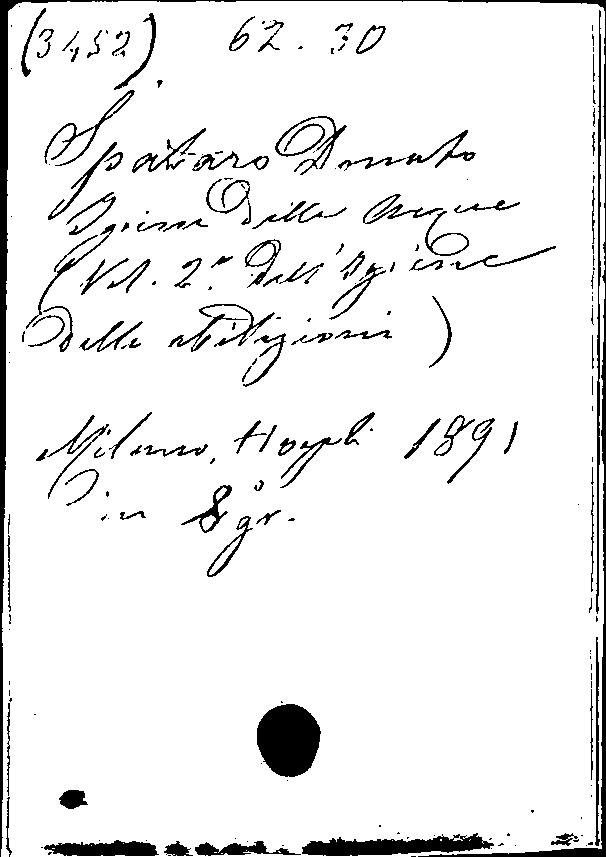 (3452) 62.30
Spataro Donato
Igiene delle Acque
(Vol. 2.° dell'Igiene
delle abitazioni)
Milano, Hoepli 1891
in 8° gr.